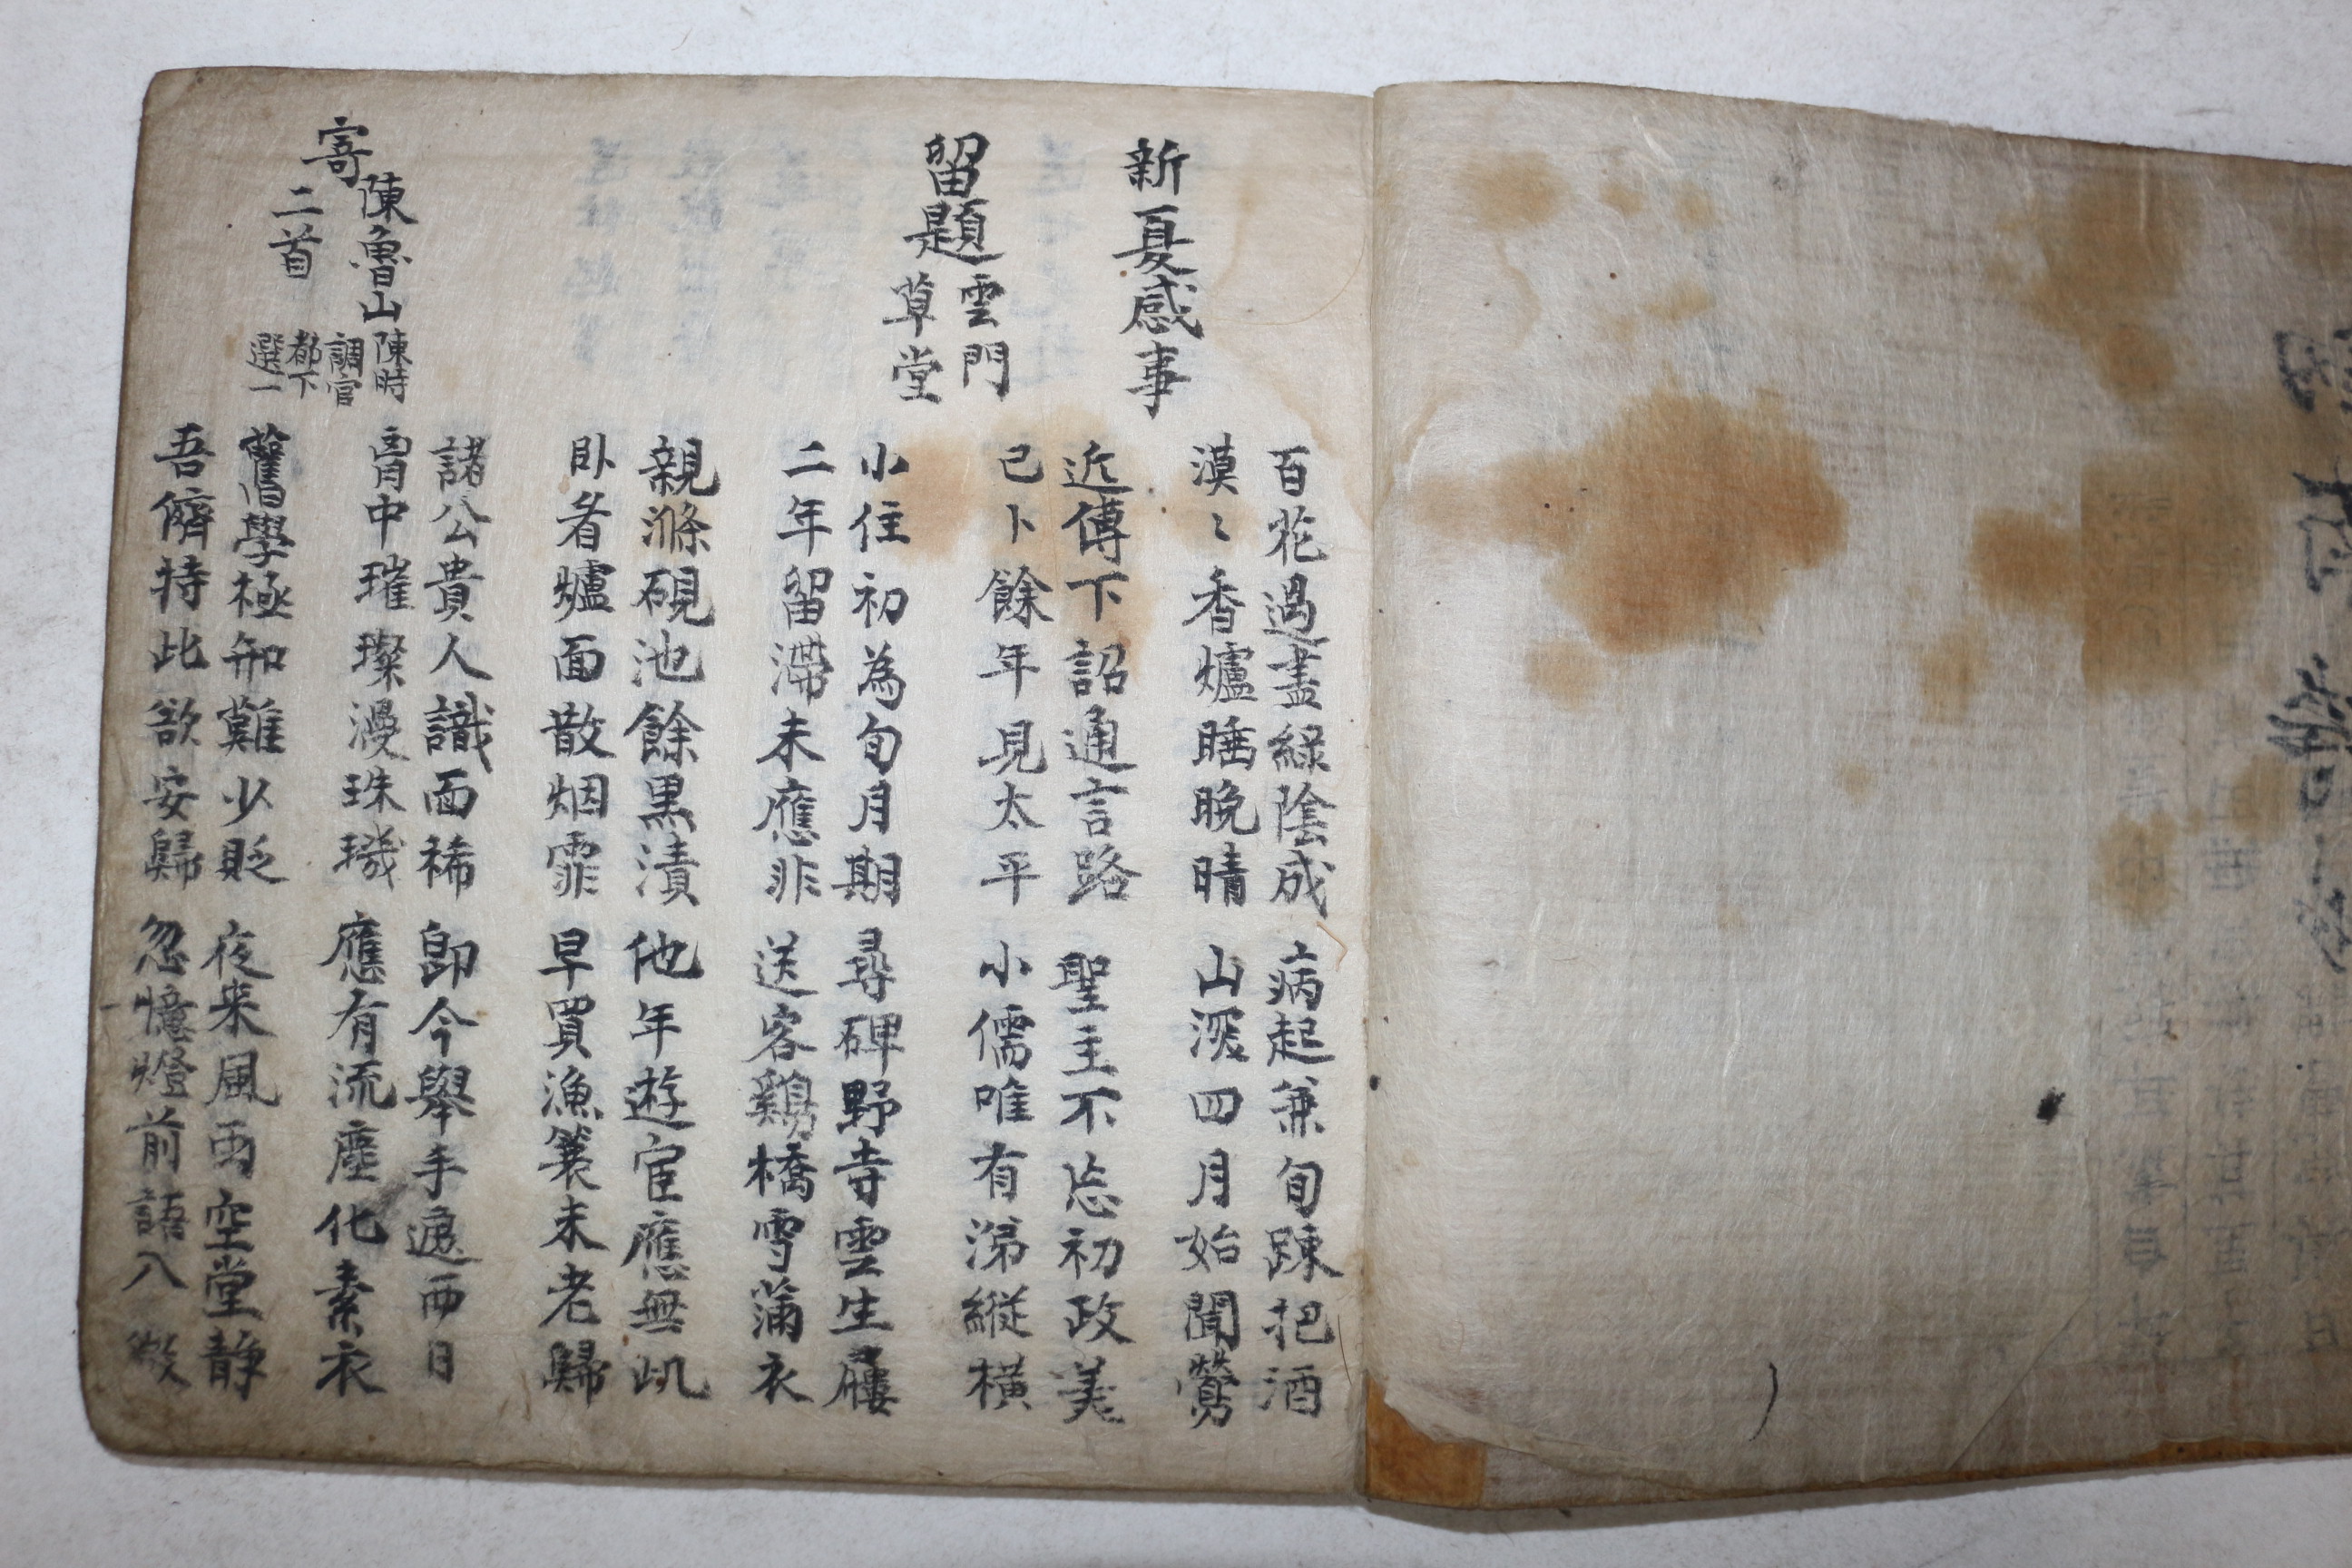 新夏感事
百花過盡綠陰成
漠〻香爐睡晚晴
病起兼旬踈把酒
山深四月始聞鶯
近傳下詔通言路
已卜餘年見太平
聖主不忘初政美
小儒唯有涕縱橫
留題雲門草堂
小住初為旬月期
二年留滯未應非
尋碑野寺雲生屨
送客鷄橋雪滿衣
親滌硯池餘黑漬
卧看爐面散烟霏
他年遊宦應無此
早買漁簑未老歸
寄陳魯山二首
陳時調官都下選一
諸公貴人識面稀
胷中璀璨漫珠璣
即今舉手遮西日
應有流塵化素衣
舊學極知難少貶
吾儕特此欲安歸
夜来風雨空堂静
忽憶燈前語入微